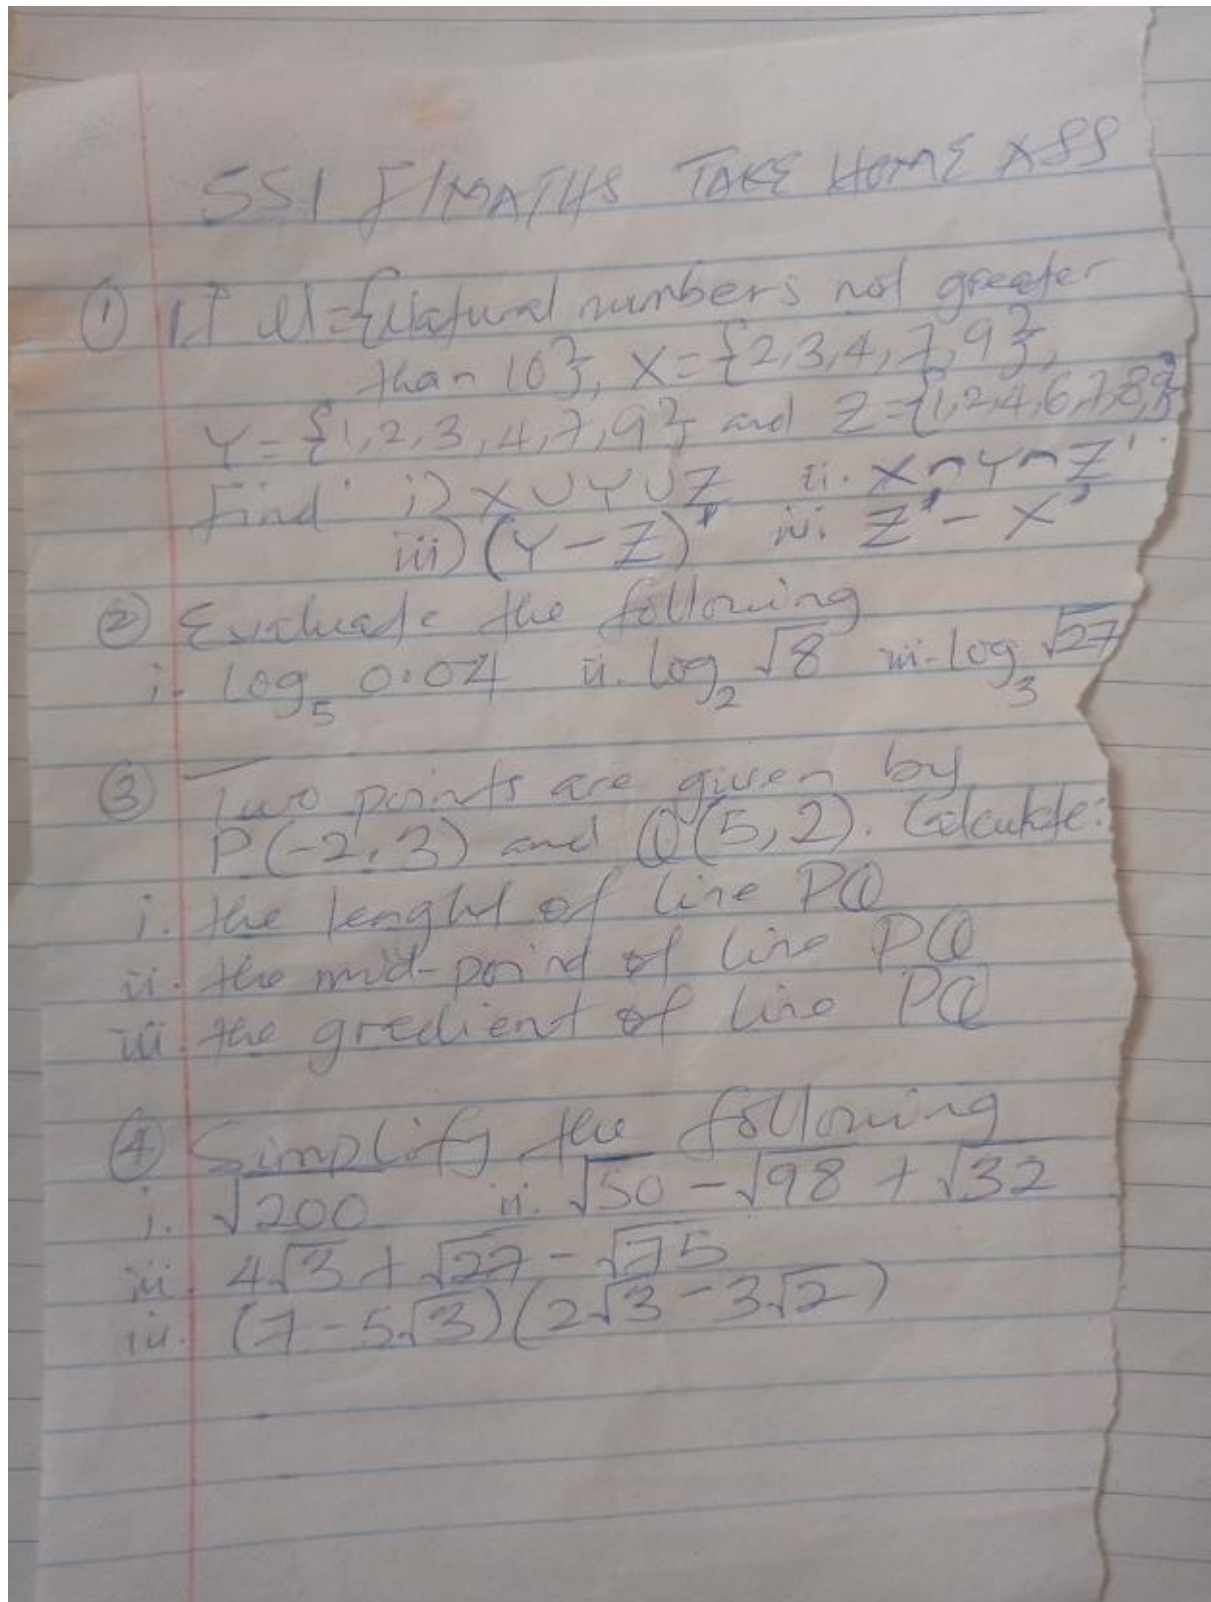 SS1 F/MATHS TAKE HOME ASS
① If U={Natural numbers not greater
than 10}, X={2,3,4,7,9},
Y={1,2,3,4,7,9} and Z={1,2,4,6,7,8,9}
Find i) X∪Y∪Z ii. X∩Y∩Z'
iii) (Y-Z)' iv. Z'-X'
② Evaluate the following
i. log₅ 0.04 ii. log₂ √8 iii. log₃ √27
③ Two points are given by
P(-2,3) and Q(5,2). Calculate:
i. the lenght of line PQ
ii. the mid-point of line PQ
iii. the gredient of line PQ
④ Simplify the following
i. √200 ii. √50 - √98 + √32
iii. 4√3 + √27 - √75
iv. (7-5√3)(2√3-3√2)